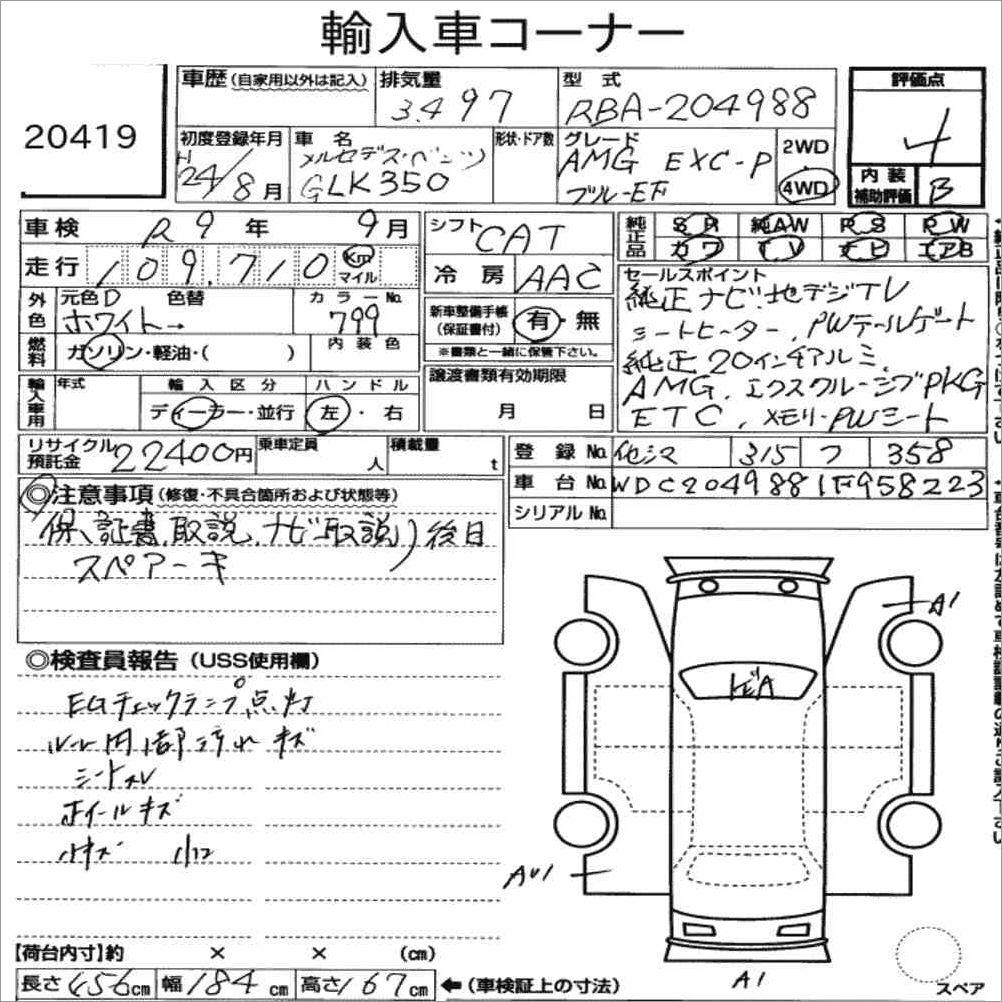 輸入車コーナー
20419
車歴(自家用以外は記入)
排気量
3.497
型式
RBA-204988
評価点
4
初度登録年月
H24/8月
車名
メルセデス・ベンツ
GLK350
形状・ドア数
グレード
AMG EXC-P
ブルーEF
2WD
4WD
内装
補助評価
B
車検 R9年 9月
走行 109,710 Km マイル
シフト CAT
冷房 AAC
純正品
SR 純AW PS PW
カワ TV ナビ エアB
外色
元色D 色替
ホワイト→
カラーNo.
799
内装色
燃料
ガソリン・軽油・( )
新車整備手帳
(保証書付)
有・無
※書類と一緒に保管下さい。
セールスポイント
純正ナビ・地デジTV
シートヒーター、PWテールゲート
純正20インチアルミ
AMG、エクスクルーシブPKG
ETC、メモリ-PWシート
輸入車用
年式
輸入区分
ディーラー・並行
ハンドル
左・右
譲渡書類有効期限
月 日
リサイクル
預託金
22400円
乗車定員
人
積載量
t
登録No. 315 フ 358
車台No. WDC2049881F958223
シリアルNo.
◎注意事項(修復・不具合箇所および状態等)
保、証書、取説、ナビ取説)後日
スペアーキ
◎検査員報告(USS使用欄)
EGチェックランプ点灯
ルーム内部汚れキズ
シートスレ
ホイールキズ
小キズ
A1
AU1
A1
スペア
【荷台内寸】約 × × (cm)
長さ456cm 幅184cm 高さ167cm ←(車検証上の寸法)